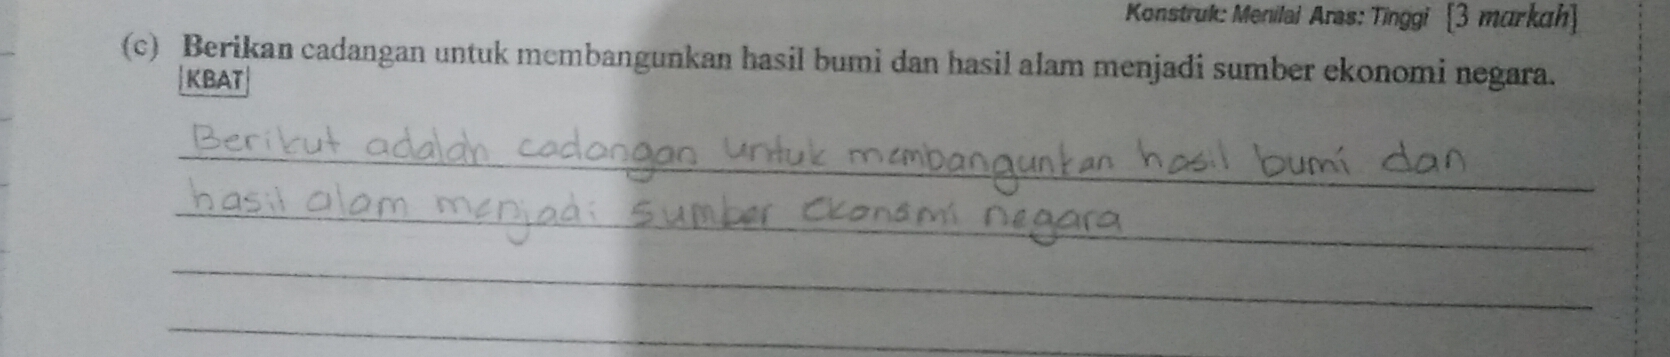 Konstruk: Menilai Aras: Tinggi [3 markah]
(c) Berikan cadangan untuk membangunkan hasil bumi dan hasil alam menjadi sumber ekonomi negara.
KBAT
Berikut adalah cadangan untuk membangunkan hasil bumi dan
hasil alam menjadi sumber ekonomi negara